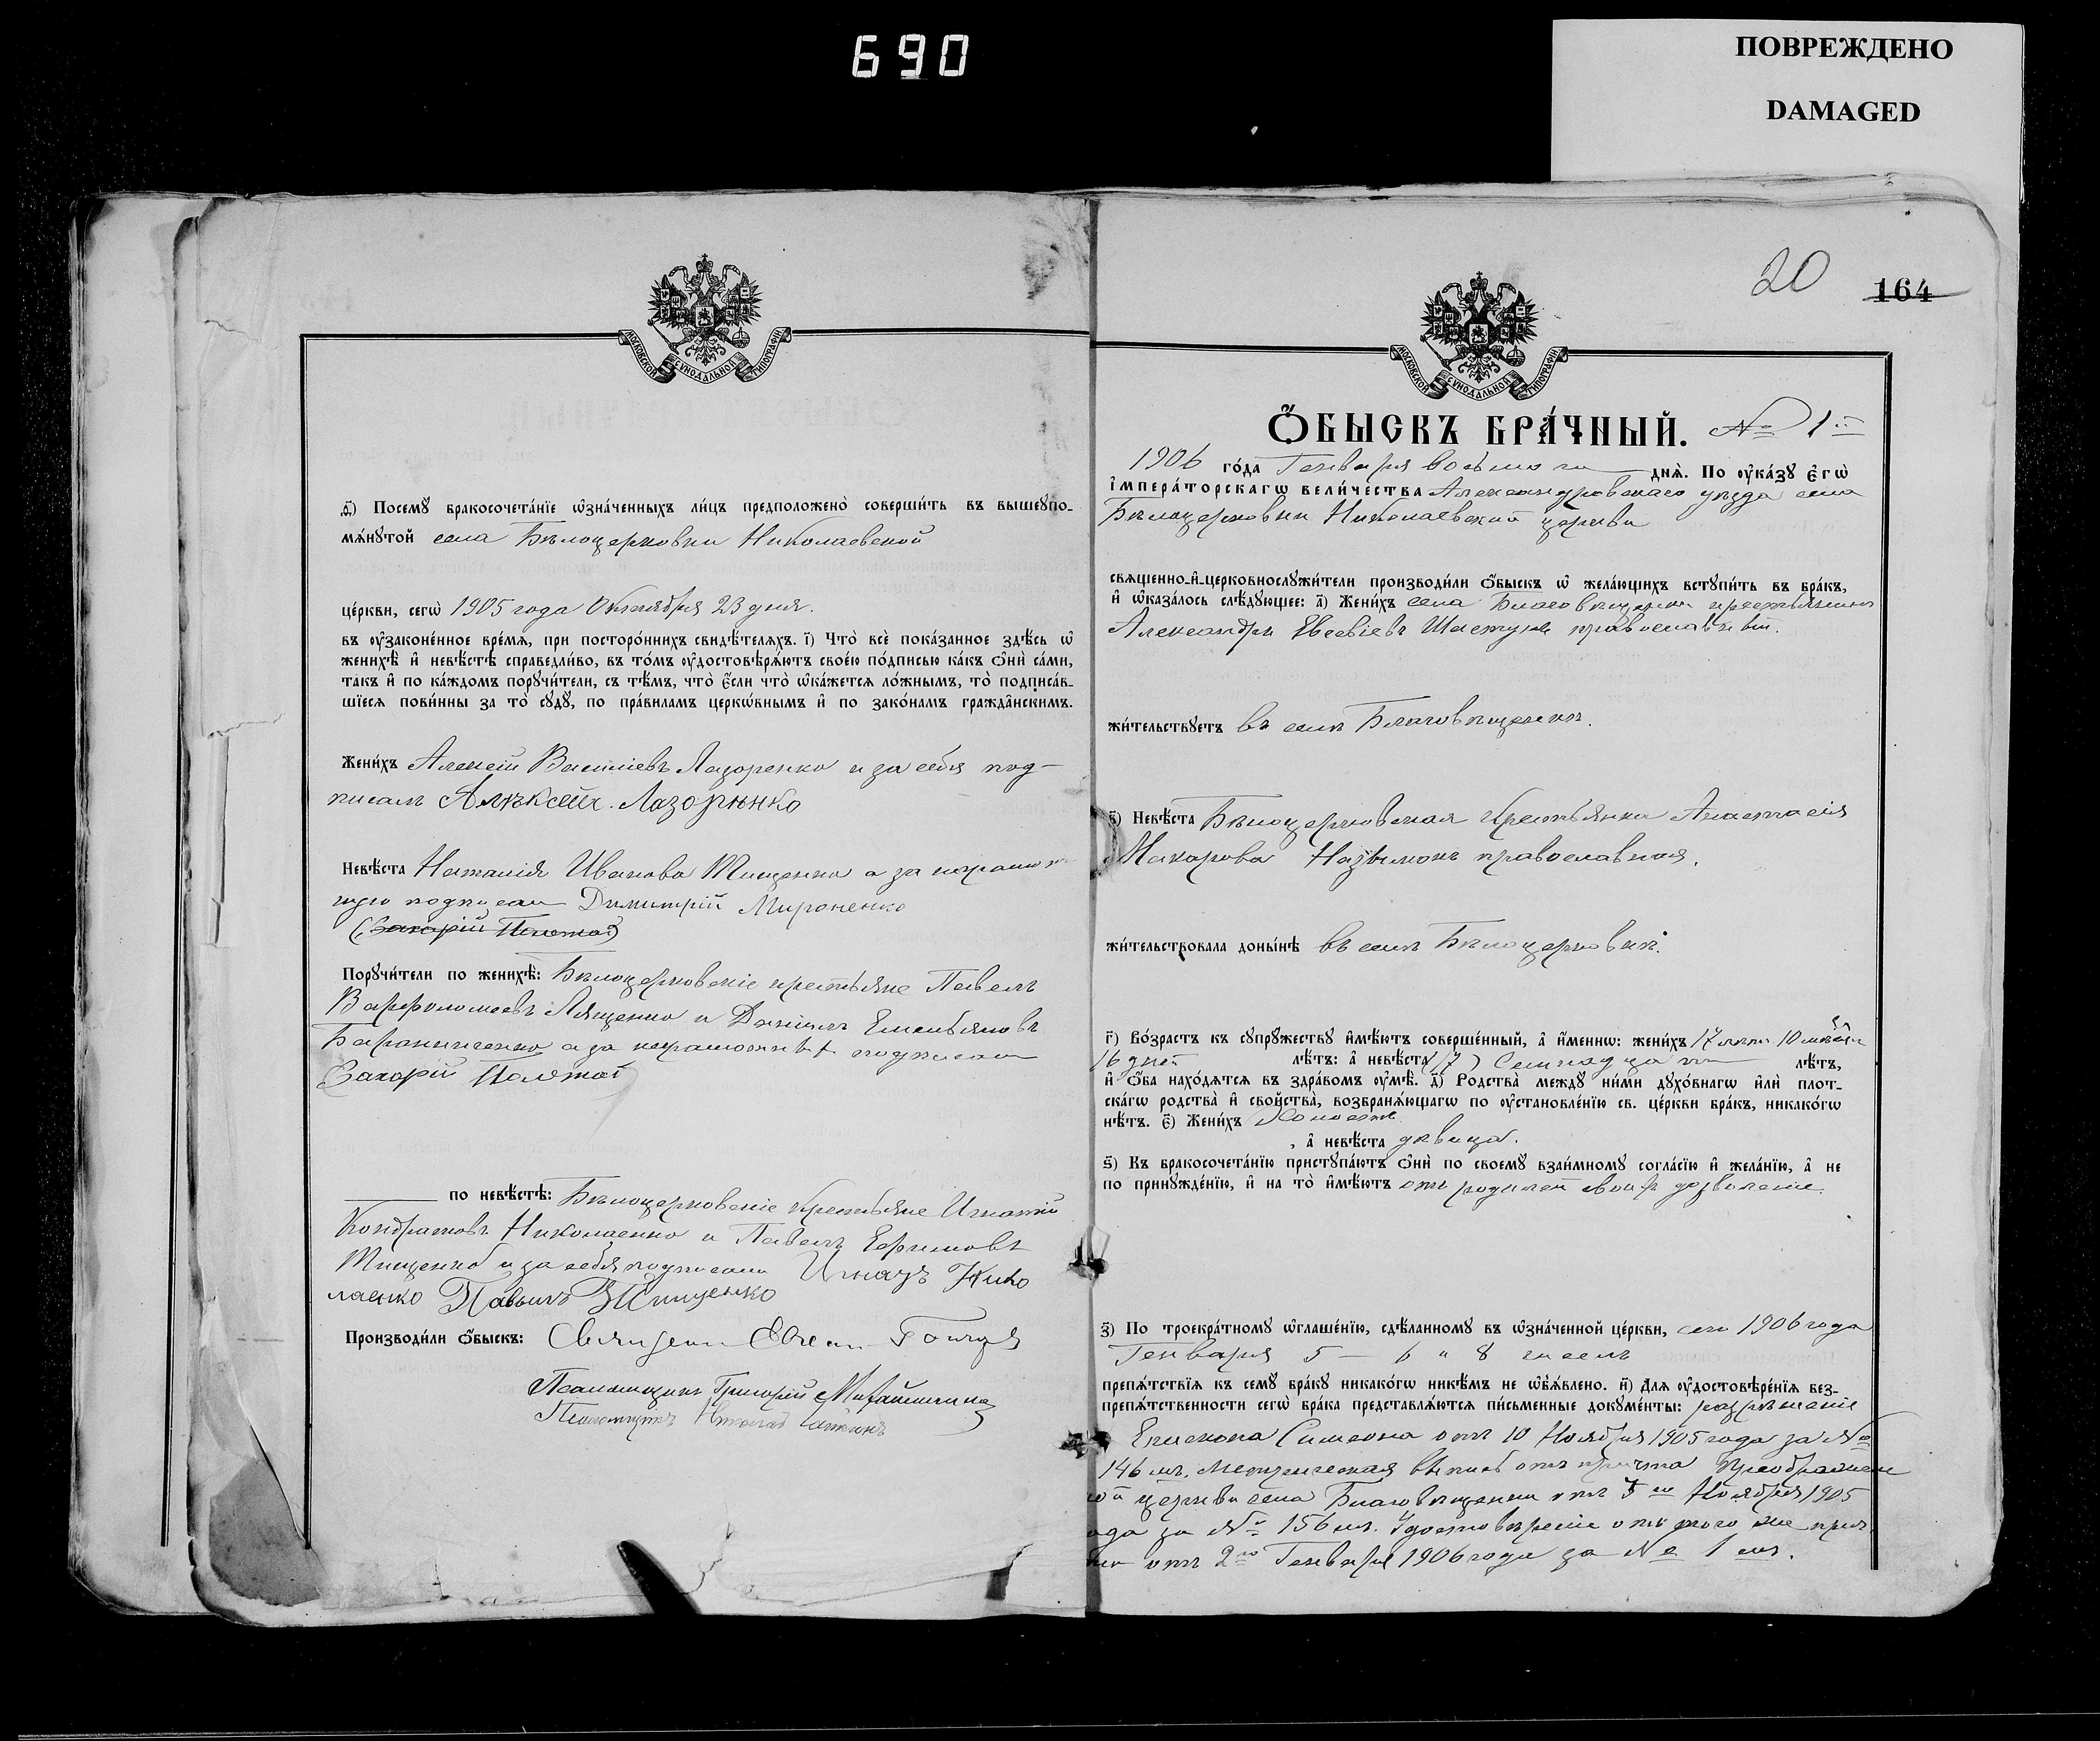 690
ПОВРЕЖДЕНО
DAMAGED
МОСКОВСКОЙ СѴНОДАЛЬНОЙ ТИПОГРАФІИ
ѳ҃) Посемꙋ бракосочета́нїе ѡ҆зна́ченныхъ ли́цъ предположено̀ соверши́ть въ вышеꙋпо-
мѧ́нꙋтой села Бѣлоцерковки Николаевской
це́ркви, сегѡ̀ 1905 года Октября 23 дня.
въ ᲂу҆зако́ненное вре́мѧ, при посторо́ннихъ свидѣ́телѧхъ. і҃) Что̀ всѐ пока́занное здѣ́сь ѡ҆
женихѣ̀ и҆ невѣ́стѣ справедли́во, въ то́мъ ᲂу҆достовѣрѧ́ютъ свое́ю по́дписью ка́къ ѻ҆нѝ са́ми,
та́къ и҆ по ка́ждомъ порꙋчи́тели, съ тѣ́мъ, что̀ є҆́сли что̀ ѡ҆ка́жетсѧ ло́жнымъ, то̀ подписа́в-
шїесѧ пови́нны за то̀ сꙋдꙋ̀, по пра́виламъ церко́внымъ и҆ по зако́намъ гражда́нскимъ.
Жени́хъ Алексій Василіевъ Лазоренко и за себя под-
писалъ Алѣксей Лазорѣнко
Невѣ́ста Наталія Иванова Тищенко а за неграмот
ную подписал Димитрій Мироненко
(Захарій)
Порꙋчи́тели по женихѣ̀: Бѣлоцерковскіе крестьяне Павелъ
Варфоломеевъ Лященко и Даніилъ Емельяновъ
а за неграмотныхъ подписал
Захарій
по невѣ́стѣ: Бѣлоцерковскіе крестьяне Игнатій
Кондратовъ Николаенко и Павелъ Ефимовъ
Тищенко и за себя подписали Игнатъ Нико
лаенко Павелъ Тищенко
Производи́ли ѻ҆́быскъ: Священ Евген
Псаломщикъ Григорій
Псаломщикъ Николай
20
164
МОСКОВСКОЙ СѴНОДАЛЬНОЙ ТИПОГРАФІИ
Ѻ҆́БЫСКЪ БРА́ЧНЫЙ. № 1й
1906 го́да Генваря восьмого днѧ̀. По ᲂу҆ка́зꙋ Є҆гѡ̀
І҆мпера́торскагѡ вели́чества Александровскаго уѣзда села
Бѣлоцерковки Николаевской церкви
свѧщенно-и҆-церковнослꙋжи́тели производи́ли ѻ҆́быскъ ѡ҆ жела́ющихъ встꙋпи́ть въ бра́къ,
и҆ ѡ҆каза́лось слѣ́дꙋющее: а҃) Жени́хъ села Благовѣщенки крестьянинъ
Александръ Евсевіевъ Шастунъ православный.
жи́тельствꙋетъ въ селѣ Благовѣщенкѣ.
в҃) Невѣ́ста Бѣлоцерковская Крестьянка Анастасія
Макарова православная.
жи́тельствовала доны́нѣ въ селѣ Бѣлоцерковкѣ.
г҃) Во́зрастъ къ сꙋпрꙋ́жествꙋ и҆мѣ́ютъ соверше́нный, а҆ и҆́меннѡ: жени́хъ 17 лѣтъ 10 мѣсяц
16 дней лѣ́тъ: а҆ невѣ́ста (17) Семнадцать лѣ́тъ,
и҆ ѻ҆́ба нахо́дѧтсѧ въ здра́вомъ ᲂу҆мѣ̀. д҃) Родства̀ между ни́ми дꙋхо́внагѡ и҆лѝ плот-
ска́гѡ родства̀ и҆ сво́йства, возбранѧ́ющагѡ по ᲂу҆становле́нїю св. це́ркви бра́къ, никако́гѡ
нѣ́тъ. є҃) Жени́хъ Холостъ
, а҆ невѣ́ста дѣвица.
ѕ҃) Къ бракосочета́нїю пристꙋпа́ютъ ѻ҆нѝ по своемꙋ̀ взаи́мномꙋ согла́сїю и҆ жела́нїю, а҆ не
по принꙋжде́нїю, и҆ на то̀ и҆мѣ́ютъ отъ родител своихъ дозволеніе.
з҃) По троекра́тномꙋ ѡ҆глаше́нїю, сдѣ́ланномꙋ въ ѡ҆зна́ченной це́ркви, сего 1906 года
Генваря 5 — 6 и 8 чиселъ
препѧ́тствїѧ къ семꙋ̀ бра́кꙋ никако́гѡ никѣ́мъ не ѡ҆б̾ѧ́влено. и҃) Длѧ ᲂу҆достовѣре́нїѧ без-
препѧ́тственности сегѡ̀ бра́ка представлѧ́ютсѧ пи́сьменные докꙋме́нты: разрѣшеніе
Епископа Симеона отъ 10 Ноября 1905 года за №
146 мъ. Метрическая выпись отъ причта Преображен
кой церкви села Благовѣщенки отъ 5го Ноября 1905
ода за № 156 мъ. Удостовѣреніе отъ того же прич
та отъ 2го Генваря 1906 года за № 1 мъ.